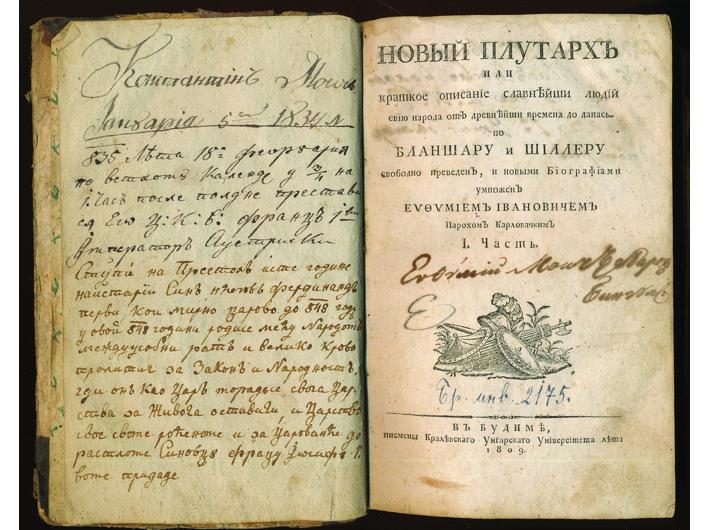 Константінъ
Іануаріа 5 1834
835 Лѣта 18: февруаріа
по ветхотъ Календ у ¾ на
1. Часъ после полдне престави
ся Его Ц: К: В: Францъ 1
Імператоръ Аустрійски
Ступи на Престолъ исте године
найстаріи Синъ нѣговъ Фердинандъ
први кои мирно царова до 848 год:
у овой 848 години родисе међу Народо
междуусобни ратъ и велико крово
пролитіе за Законъ и Народностъ,
гди онъ Као Царъ
за Живота остави и Царство
свое и за Царованѣ до
Синовцу Францу Јосифу 1
придаде
НОВЫЙ ПЛУТАРХЪ
ИЛИ
краткое описаніе славнѣйши людій
свію народа отъ древнѣйши времена до данасъ.
по
БЛАНШАРУ и ШІЛЛЕРУ
свободно преведенъ, и новыми Біографіами
умноженъ
ЕѴѲѴМІЕМЪ ІВАНОВИЧЕМЪ
Парохомъ Карловачкимъ
I. Часть.
Евѳимій
Бр. инв. 2175.
ВЪ БУДИМѢ,
писмены Кралѣвскаго Унгарскаго Універсітета лѣта
1809.